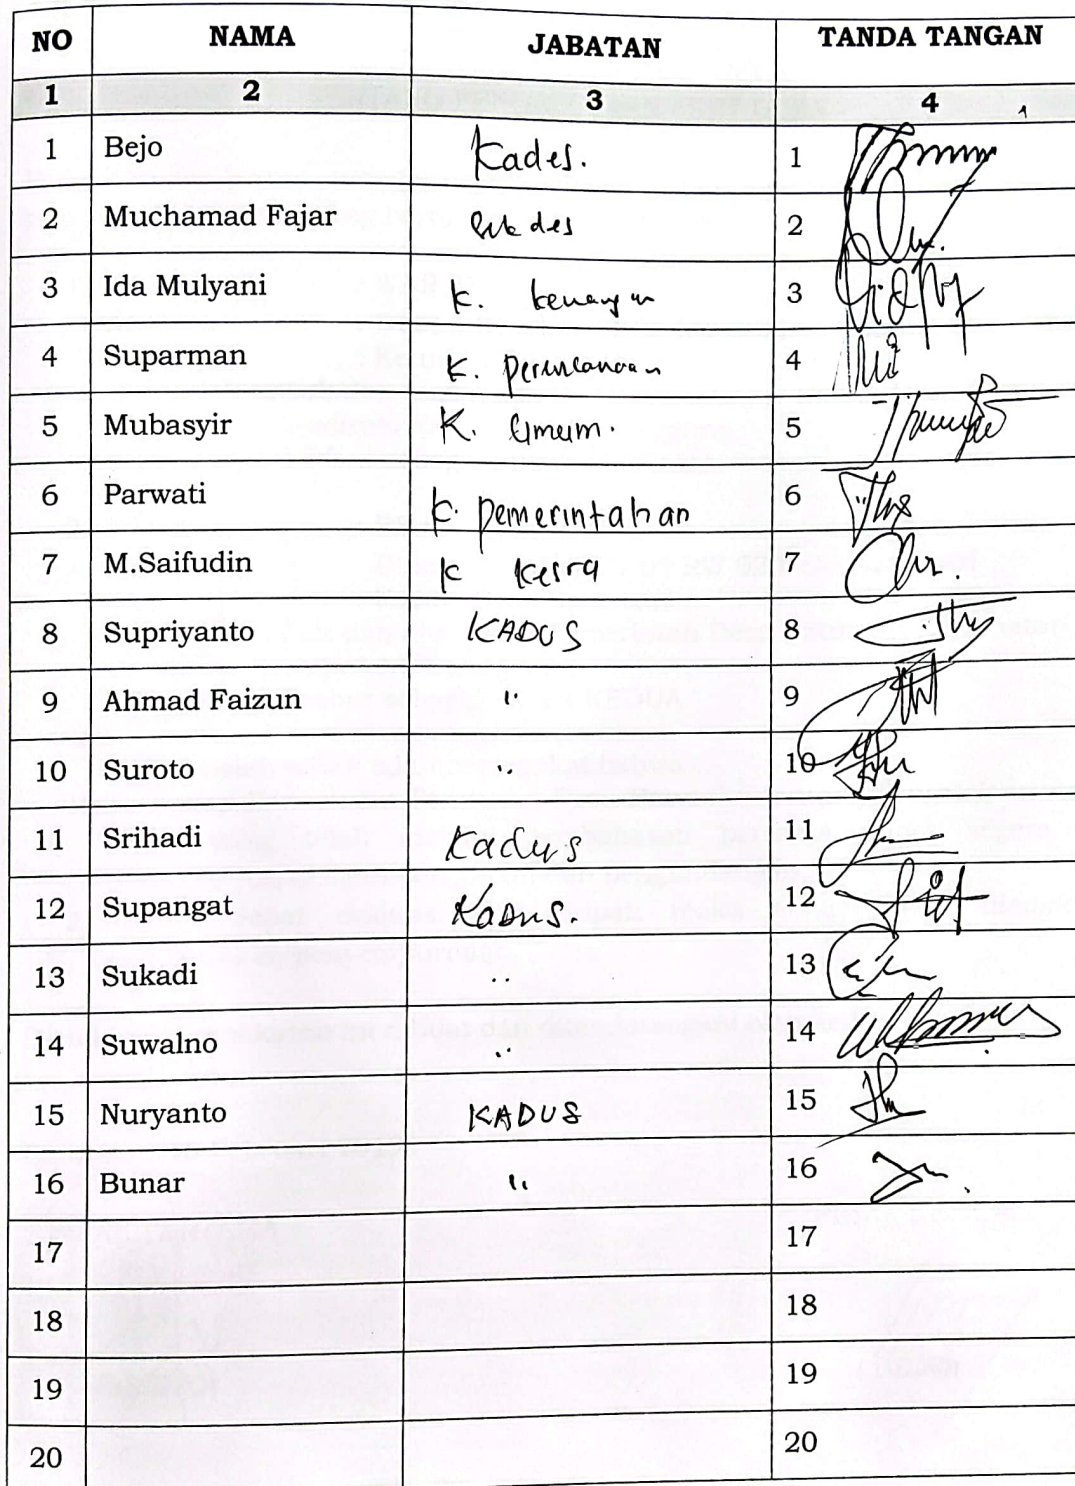 NO NAMA JABATAN TANDA TANGAN
1 2 3 4
1 Bejo Kades. 1
2 Muchamad Fajar Sekdes 2
3 Ida Mulyani K. keuangan 3
4 Suparman K. perencanaan 4
5 Mubasyir K. Umum. 5
6 Parwati K. pemerintahan 6
7 M.Saifudin K Kesra 7
8 Supriyanto KADUS 8
9 Ahmad Faizun " 9
10 Suroto " 10
11 Srihadi Kadus 11
12 Supangat KADUS. 12
13 Sukadi " 13
14 Suwalno " 14
15 Nuryanto KADUS 15
16 Bunar " 16
17 17
18 18
19 19
20 20